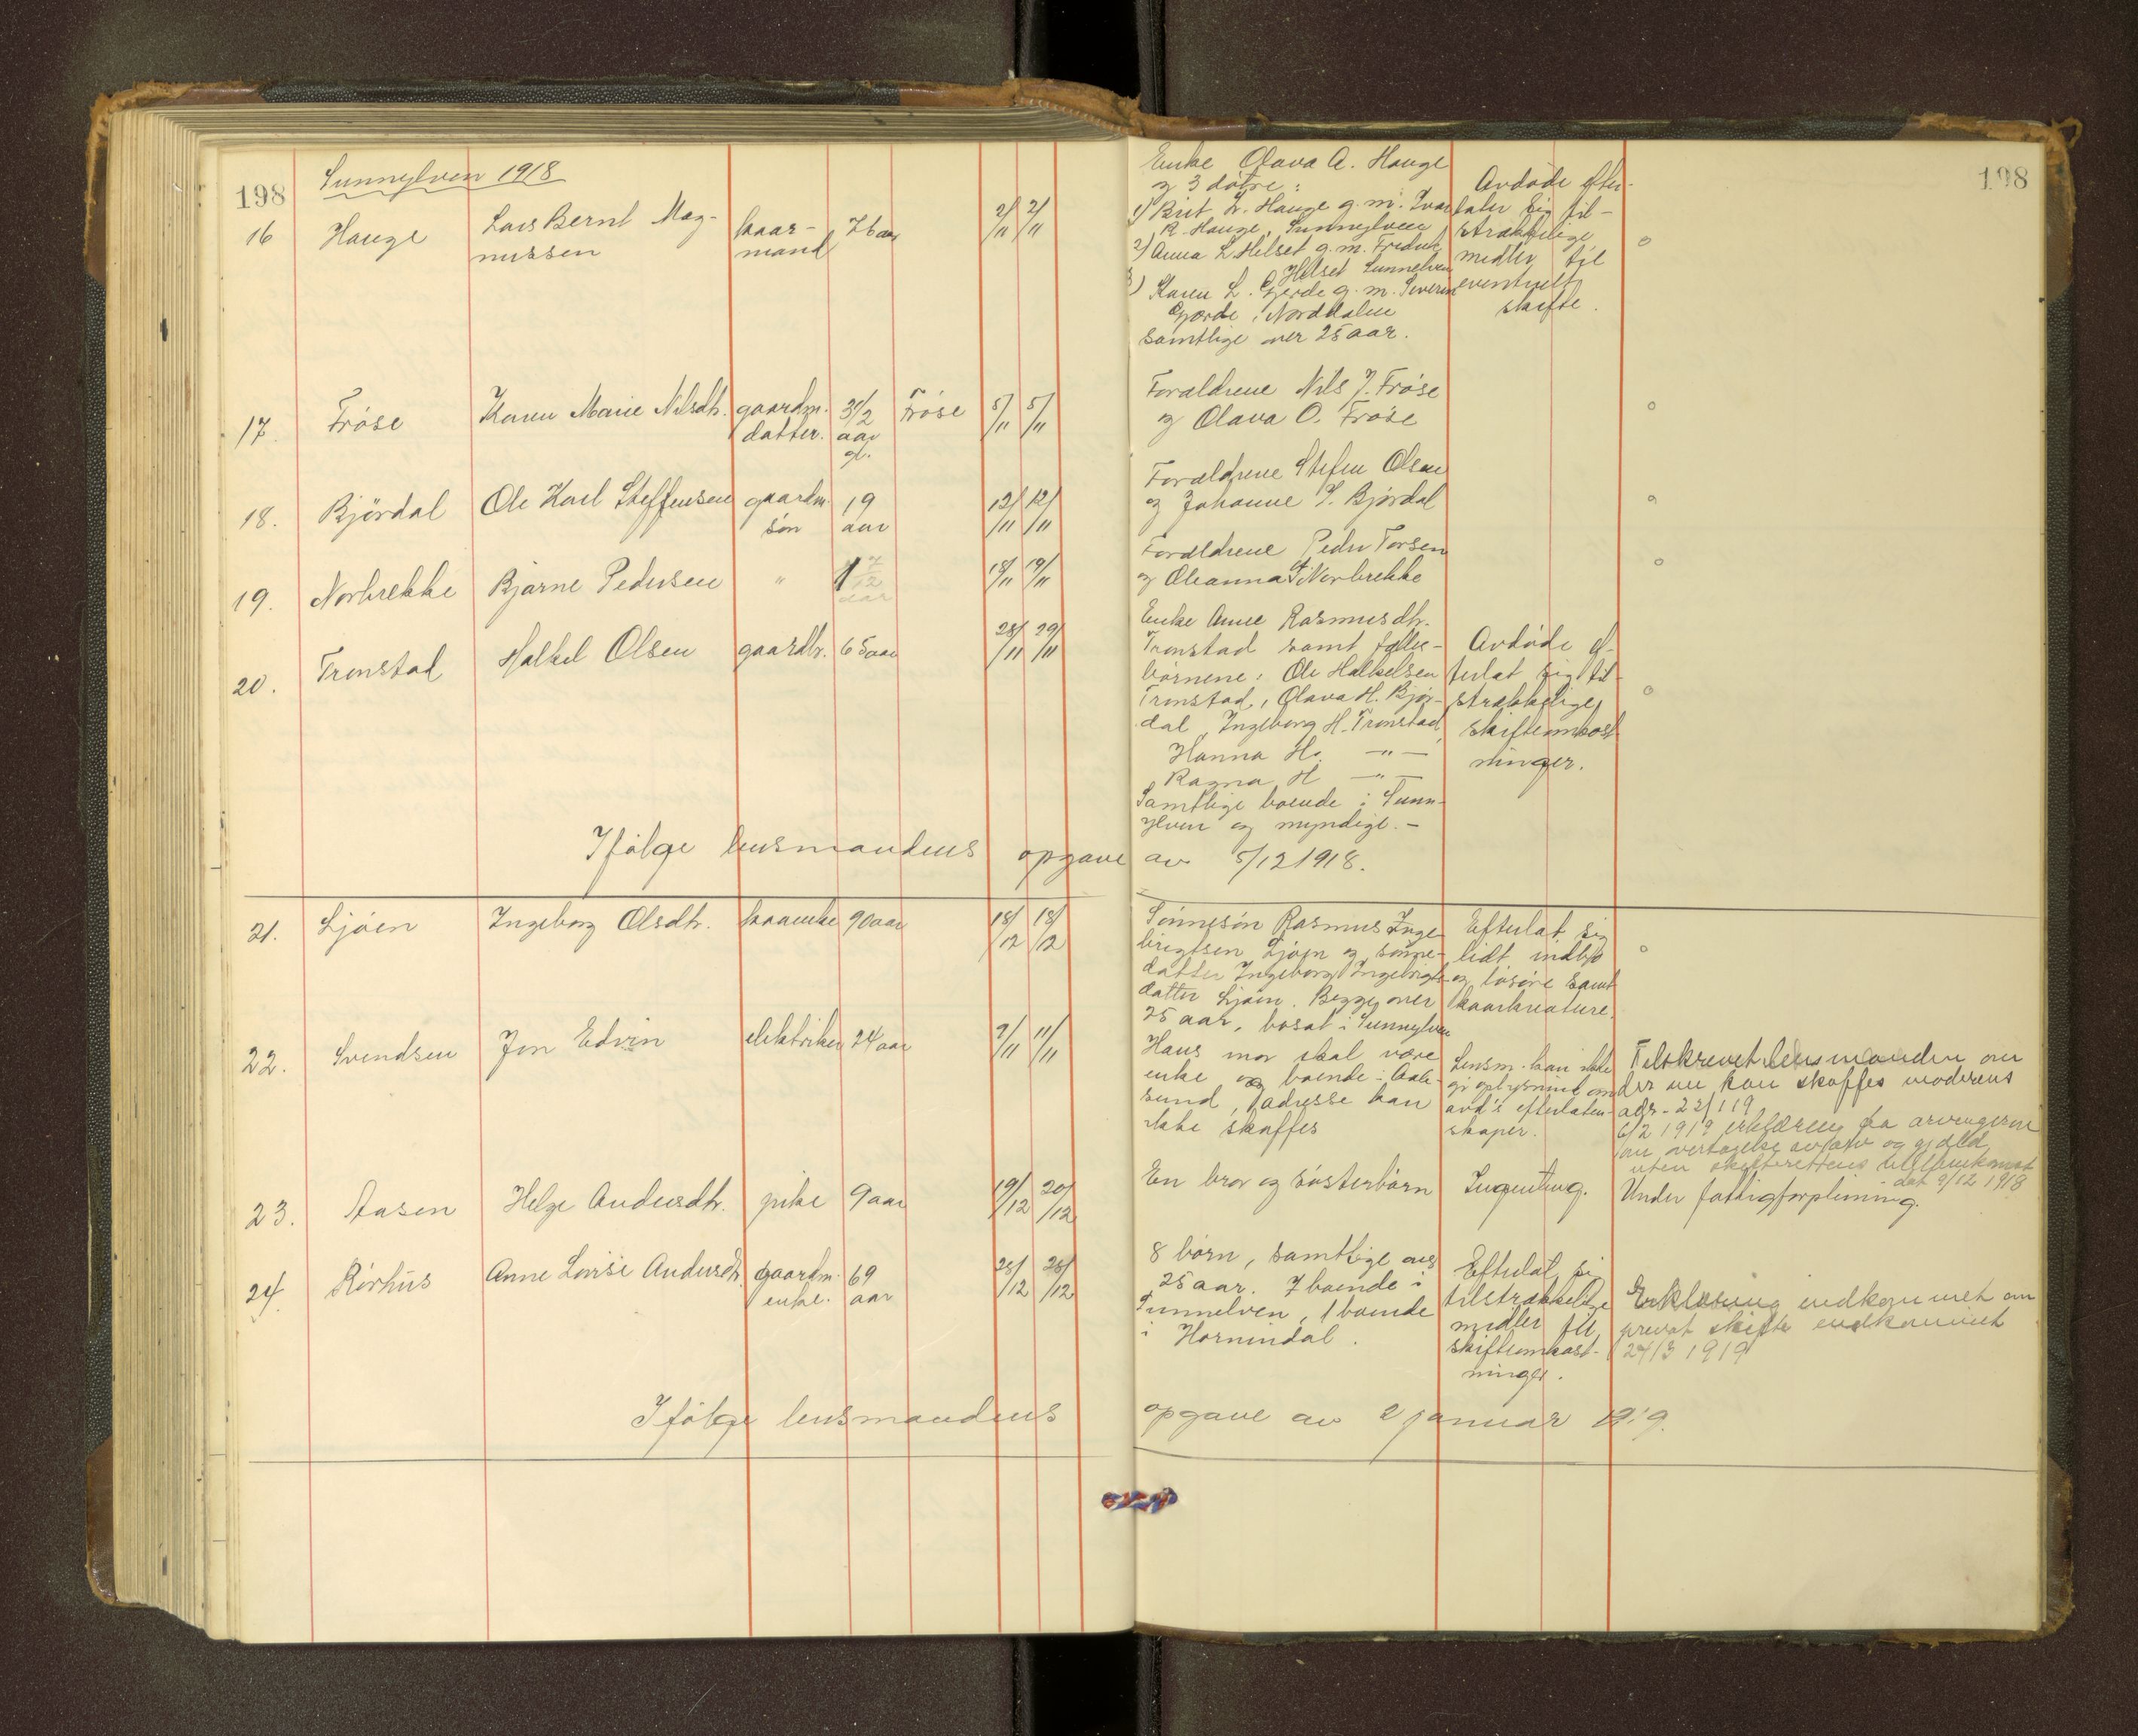 198
Sunnylven 1918
198
16 Hauge Lars Bernt Mag- kaar- 76 aar 2/11 2/11
nussen mand
Enke Olava A. Hauge
og 3 døtre:
1) Brit L. Hauge g. m. Ivar
R. Hauge, Sunnylven
2) Anna L. Helset g. m. Fredrik
Helset Sunnelven
3) Karen L. Gjerde g. m. Severin
Gjerde, Norddalen
samtlige over 25 aar.
Avdøde efter-
later sig til-
strækkelige
midler til
eventuelt
skifte.
17. Frøse Karen Marie Nilsdtr. gaardm. 3 1/2 Frøse 5/11 5/11
datter. aar
gl.
Forældrene Nils J. Frøse
og Olava O. Frøse
18. Bjørdal Ole Karl Steffensen gaardm. 19 12/11 12/11
søn aar
Forældrene Stefen Olsen
og Johanne J. Bjørdal
19. Norbrekke Bjarne Pedersen " 1 7/12 18/11 19/11
aar
Forældrene Peder Torsen
og Oleanna Norbrekke
20. Tronstad Halkel Olsen gaardbr. 65 aar 28/11 29/11
Enke Anne Rasmusdtr.
Tronstad samt fælles-
børnene: Ole Halkelsen
Tronstad, Olava H. Bjør-
dal, Ingeborg H. Tronstad,
Hanna H. — " —
Ragna H — " —
Samtlige boende i Sunn-
ylven og myndige. —
Avdøde ef-
terlat sig til-
strækkelige
skifteomkost
ninger.
Ifølge lensmandens opgave av 5/12 1918.
21. Ljøen Ingeborg Olsdtr. kaarenke 90 aar 18/12 18/12
Sønnesøn Rasmus Inge
brigtsen Ljøen og sønne-
datter Ingeborg Ingebrigts-
datter Ljøen. Begge over
25 aar, bosat i Sunnylven
Efterlat sig
lidt indbo
og løsøre samt
kaarkreature.
22. Svendsen Jon Edvin elektriker 24 aar 9/11 11/11
Hans mor skal være
enke og boende i Aale-
sund, adresse kan
ikke skaffes
Lensm. kan ikke
gi oplysning om
avd's efterlaten-
skaper.
Tilskrevet lensmanden om
der nu kan skaffes moderens
adr. - 22/1 19
6/2 1919 erklæring fra arvingerne
om overtagelse av arv og gjæld
uten skifterettens mellemkomst
dat 9/12 1918
23. Aasen Helge Andersdtr. pike 9 aar 19/12 20/12
En bror og søsterbørn
Ingenting.
Under fattigforpleining.
24. Rørhus Anne Lovise Andersdtr. gaardm. 69 28/12 28/12
enke. aar
8 børn, samtlige over
25 aar. 7 boende i
Sunnelven, 1 boende
i Hornindal.
Efterlat sig
tilstrækkelige
midler til
skifteomkost-
ninger.
Erklæring indkommet om
privat skifte indkommet
24/3 1919
Ifølge lensmandens opgave av 2 januar 1919.